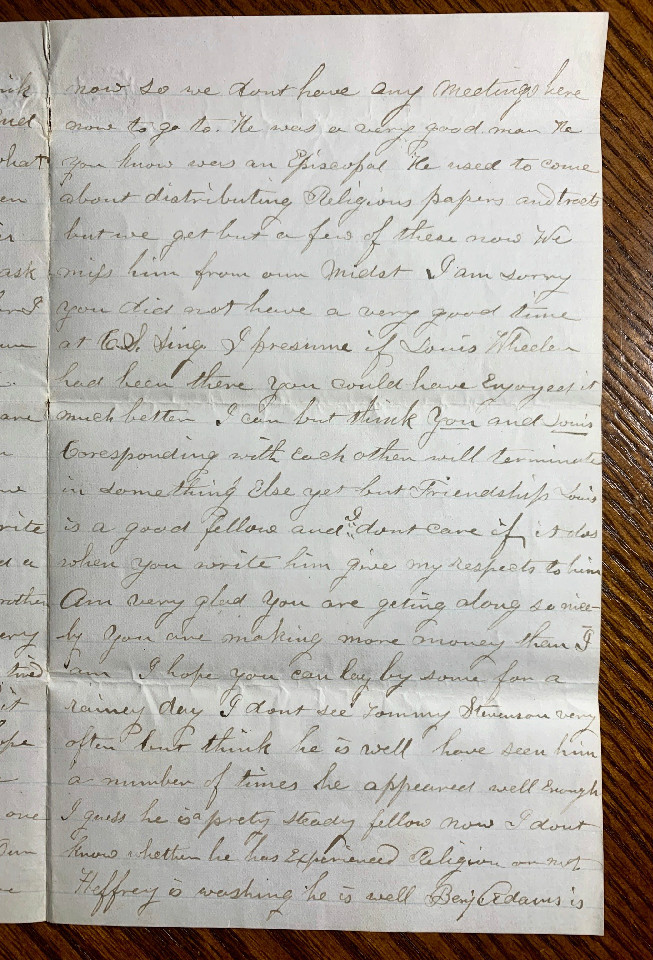 now so we dont have any meetings here
now to go to. He was a very good man He
you know was an Episcopal He used to come
about distributing Religious papers and tracts
but we get but a few of these now We
miss him from our midst I am sorry
you did not have a very good time
at Sing. I presume if Louis Wheeler
had been there you could have Enjoyed it
much better I can but think You and Louis
Corresponding with each other will terminate
in something Else yet but Friendship Louis
is a good fellow and I dont care if it does
when you write him give my respects to him
Am very glad you are geting along so nice-
ly you are making more money than I
am I hope you can lay by some for a
rainey day I dont see Tommy Stevenson very
often but think he is well have seen him
a number of times he appeared well Enough
I guess he is a pretty steady fellow now I dont
know whether he has Experienced Religion or not
is washing he is well Benj Adams is
ink
what
en
ask
are
rite
d a
ery
tired
it
ope
one